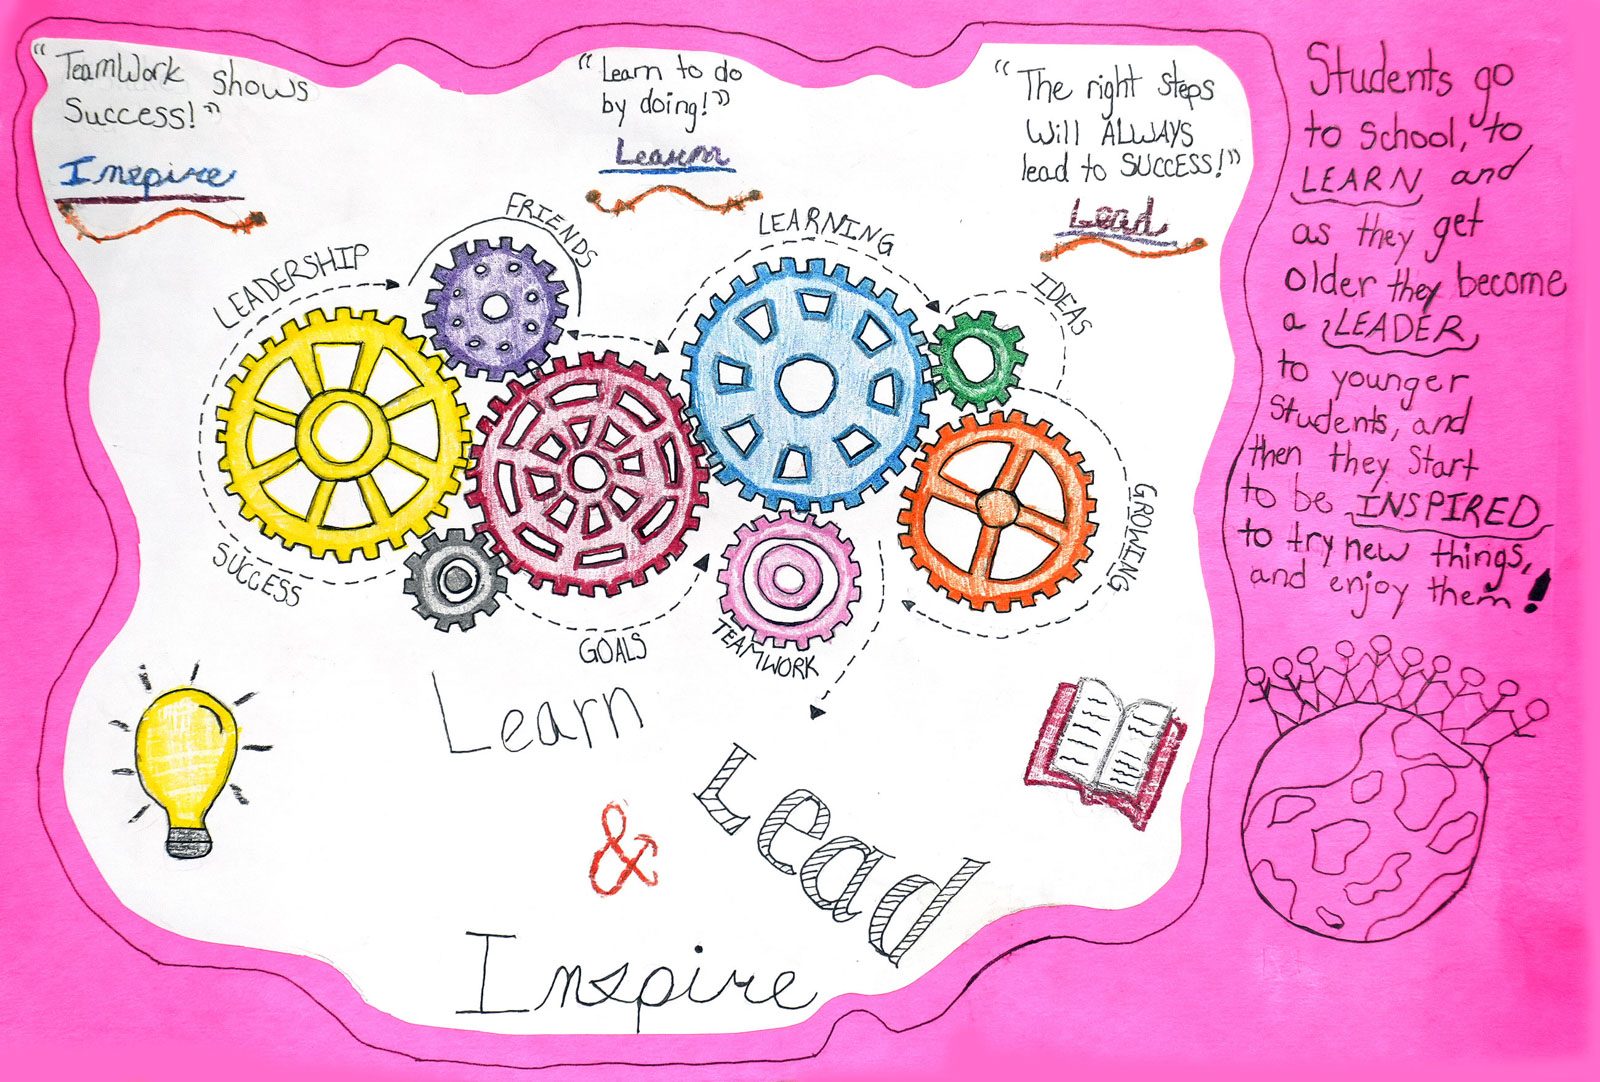 “TeamWork shows
Success!”
Inspire
“Learn to do
by doing!”
Learn
“The right Steps
Will ALWAYS
lead to SUCCESS!”
Lead
LEADERSHIP
FRIENDS
LEARNING
IDEAS
SUCCESS
GOALS
TEAMWORK
GROWING
Learn
&
Lead
Inspire
Students go
to School, to
LEARN and
as they get
older they become
a LEADER
to younger
Students, and
then they Start
to be INSPIRED
to try new things,
and enjoy them!